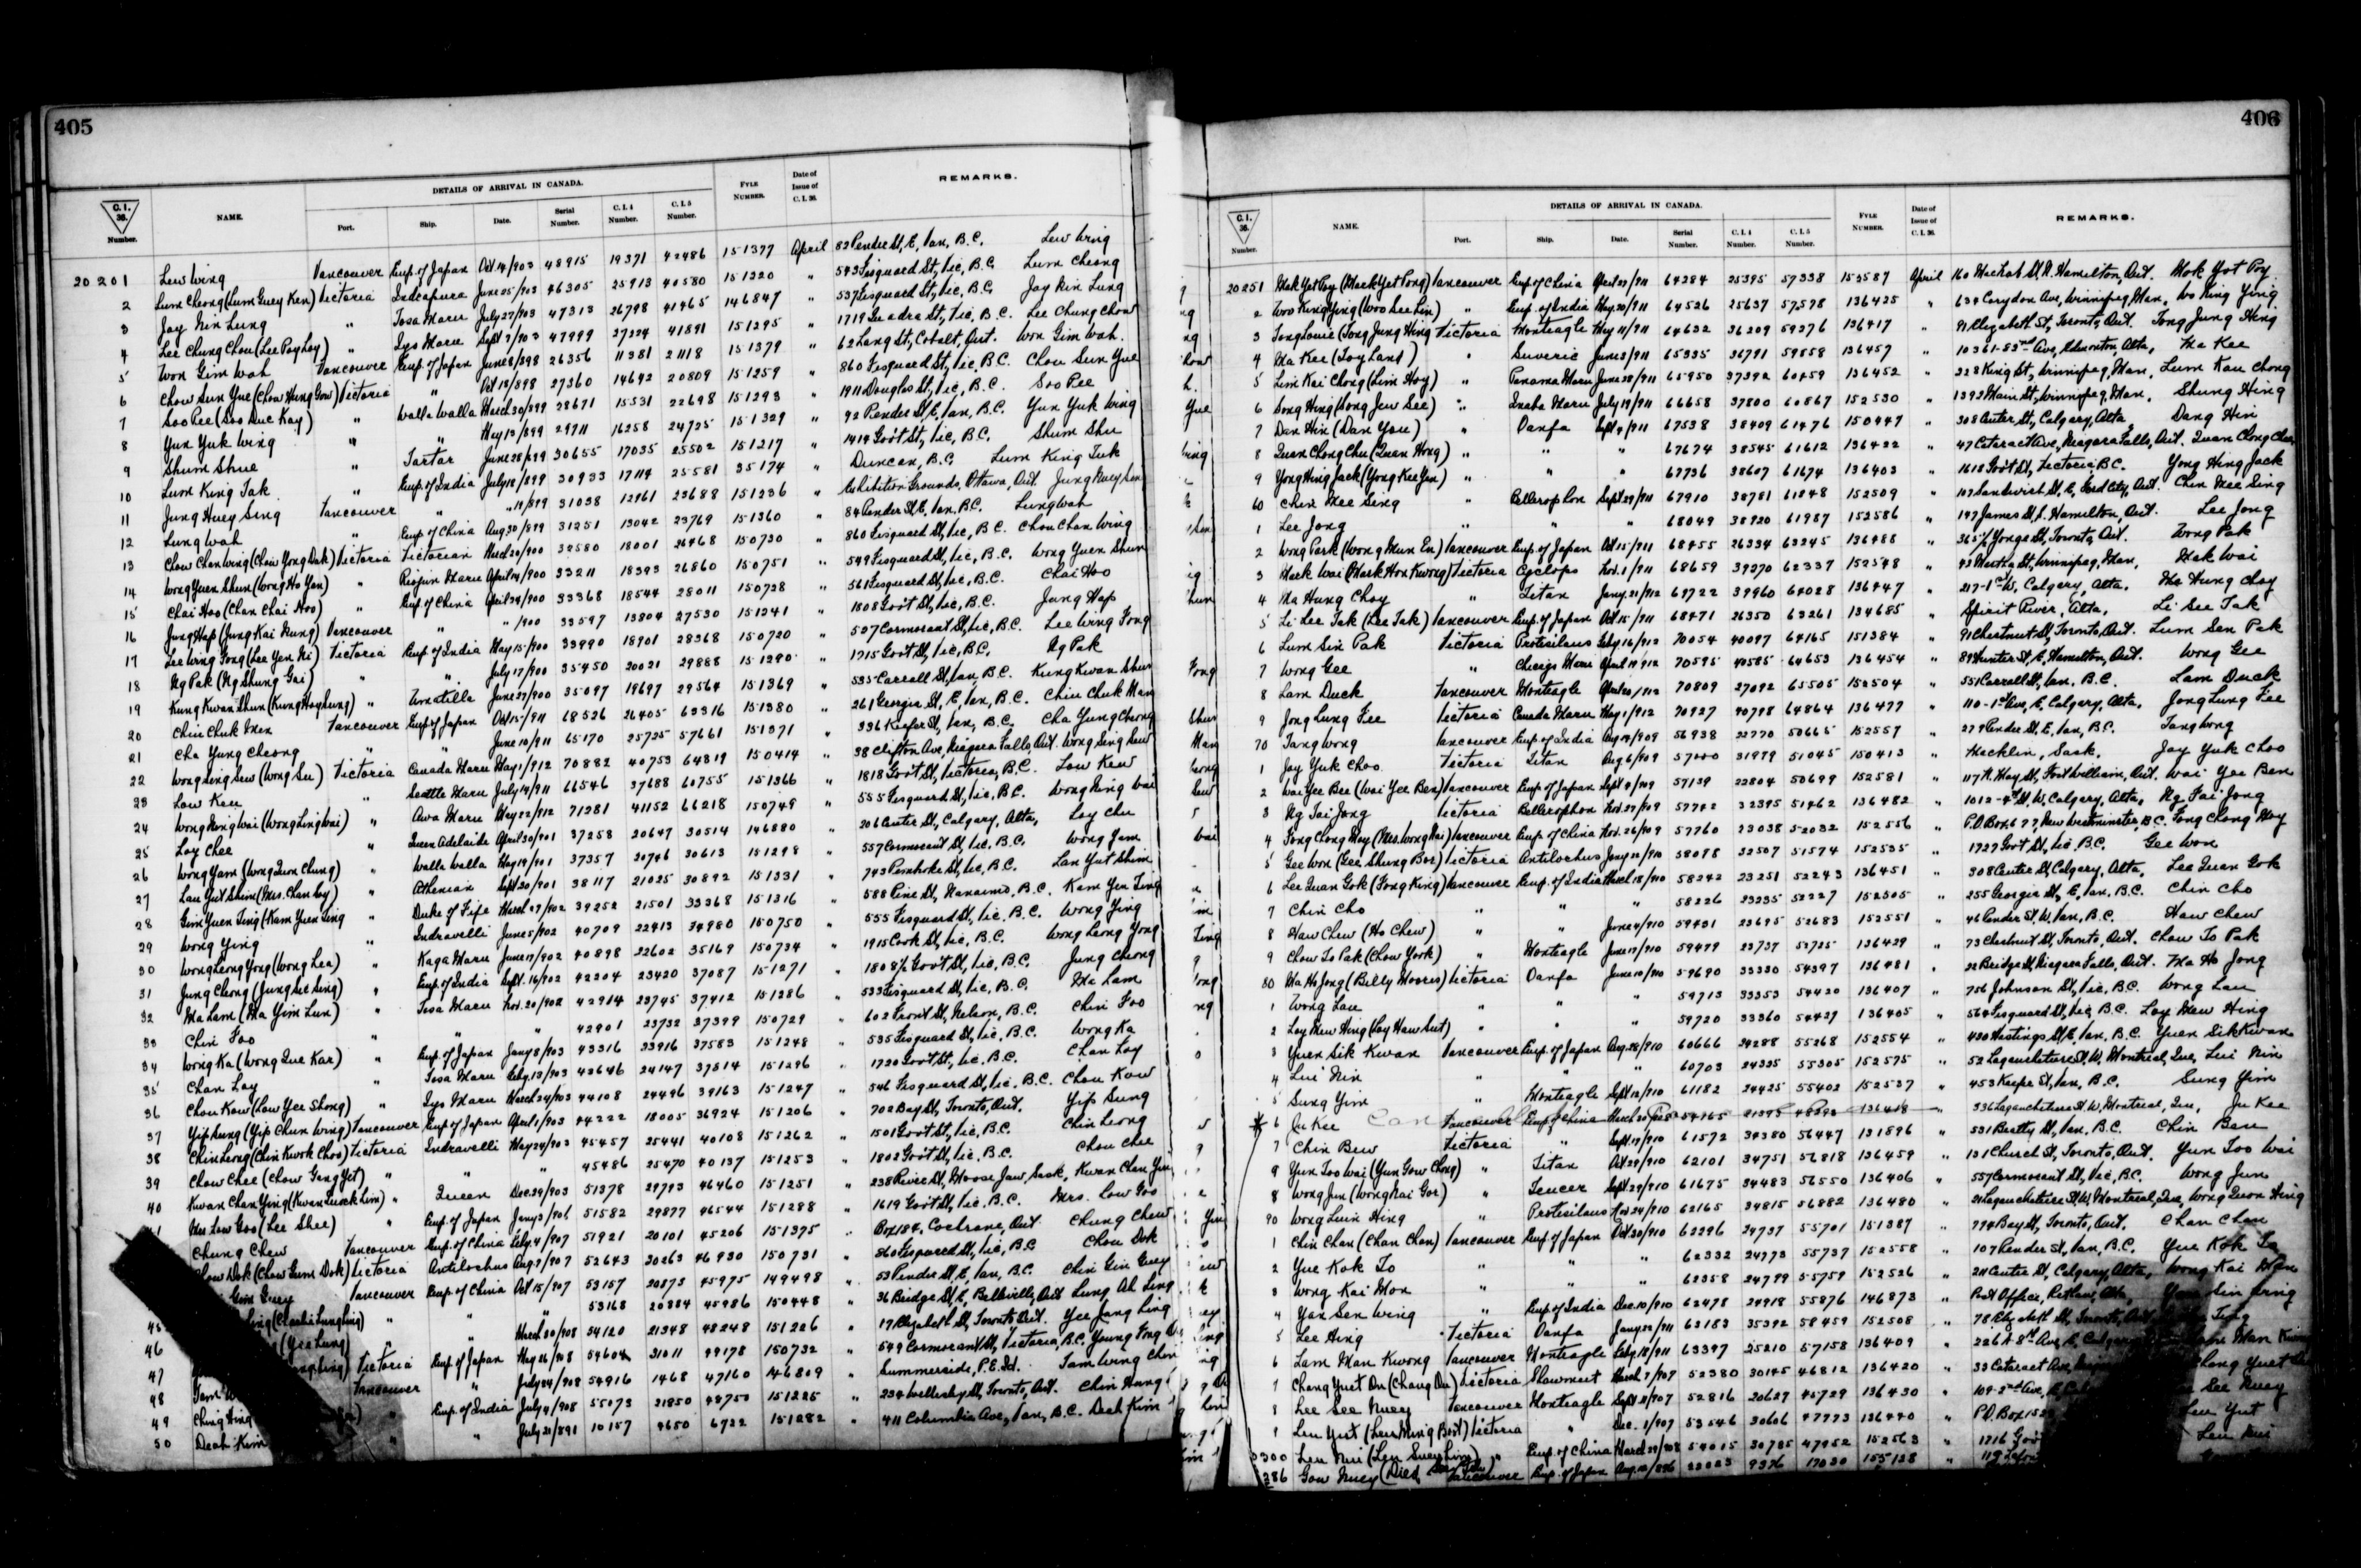 405
DETAILS OF ARRIVAL IN CANADA.
C.I. 36. Number. NAME. Port. Ship. Date. Serial Number. C.I.4 Number. C.I.5 Number. FYLE NUMBER. Date of Issue of C.I.36. REMARKS.
20201 Lew Wing Vancouver Emp. of Japan Oct 14/903 48915 19371 42486 151377 April 82 Pender St, E, Van, B.C. Lew Wing
2 Lum Cheong (Lum Guey Ken) Victoria Indrapura June 25/903 46305 25913 40580 151320 " 543 Fisguard St, Vic, B.C. Lum Cheong
3 Jay Nin Lung " Tosa Maru July 27/903 47313 26798 41465 146847 " 537 Fisguard St, Vic, B.C. Jay Nin Lung
4 Lee Chung Chou " Lyo Maru Sept 2/903 47999 27224 41891 151295 " 1719 St, Vic, B.C. Lee Chung Chou
5 Won Gim Wah Vancouver Emp. of Japan June 8/898 26356 11381 21118 151379 " 62 Lang St, Cobalt, Ont. Won Gim Wah
6 Chow Sun Yue (Chow Hung Gow) Victoria " Oct 18/898 27360 14642 20809 151259 " 860 Fisguard St, Vic, B.C. Chou Sun Yue
7 Soo Pee (Soo Duc Kay) " Walla Walla March 30/899 28671 15531 22698 151293 " 1911 Douglas St, Vic, B.C. Soo Pee
8 Yun Yuk Wing " " May 13/899 29711 16258 24725 151329 " 92 Pender St, E, Van, B.C. Yun Yuk Wing
9 Shum Shue " Tartar June 28/899 30655 17035 25502 151217 " 1414 Gov't St, Vic, B.C. Shum Shu
10 Lum King Tak " Emp. of India July 18/899 30933 17114 25581 35174 " Duncan, B.C. Lum King Tuk
11 Jung Huey Sing Vancouver " " 19/899 31038 12961 23688 151236 " Exhibition Grounds, Ottawa, Ont. Jung Huey Sing
12 Lung Wah " Emp. of China Aug. 30/899 31251 13042 23769 151360 " 84 Pender St, E, Van, B.C. Lung Wah
13 Chow Chan Wing (Chow Yong Dak) Victoria Victorian March 20/900 32580 18001 26468 150730 " 860 Fisguard St, Vic, B.C. Chou Chan Wing
14 Wong Yuen Shun (Wong Ho Yon) " Riojun Maru April 14/900 33211 18393 26860 150751 " 549 Fisguard St, Vic, B.C. Wong Yuen Shun
15 Chai Hoo (Chan Chai Hoo) " Emp. of China April 24/900 33368 18544 28011 150738 " 561 Fisguard St, Vic, B.C. Chai Hoo
16 Jung Hap (Jung Kai Mung) Vancouver " " /900 33597 13804 27530 151241 " 1808 Gov't St, Vic, B.C. Jung Hap
17 Lee Wing Fong (Lee Yen Ni) Victoria Emp. of India May 15/900 33990 18901 28368 150720 " 597 Cormorant St, Vic, B.C. Lee Wing Fong
18 Ng Pak (Ng Shung Gai) " " July 17/900 35450 20021 29888 151290 " 1715 Gov't St, Vic, B.C. Ng Pak
19 Kung Kwan Shun (Kung Hoy Lung) " Umatilla June 27/900 35097 19697 29564 151369 " 535 Carrall St, Van, B.C. Kung Kwan Shun
20 Chin Chuk Men Vancouver Emp. of Japan Oct 15/911 68526 26405 63316 151380 " 261 Georgia St, E, Van, B.C. Chin Chuk Man
21 Cha Yung Cheong " " June 10/911 65170 25725 57661 151371 " 336 Keefer St, Van, B.C. Cha Yung Cheong
22 Wong Sing Sew (Wong Su) Victoria Canada Maru May 1/912 70882 40753 64819 150414 " 38 Clifton Ave, Niagara Falls, Ont. Wong Sing Sew
23 Low Kew " Seattle Maru July 14/911 66546 37688 60755 151366 " 1818 Gov't St, Victoria, B.C. Low Kew
24 Wong Ning Wai (Wong Ling Wai) " Awa Maru May 22/912 71281 41152 66218 150749 " 555 Fisguard St, Vic, B.C. Wong Ning Wai
25 Loy Chee " Queen Adelaide April 30/901 37258 20647 30514 146880 " 206 Center St, Calgary, Alta, Loy Chu
26 Wong Yam (Wong Quon Chung) " Walla Walla May 19/901 37357 20746 30613 151298 " 557 Cormorant St, Vic, B.C. Wong Jam
27 Lau Yut Shim (Mrs. Chan Coy) " Athenian Sept 20/901 38117 21025 30892 151331 " 743 Pembroke St, Vic, B.C. Lau Yut Shim
28 Gim Yuen Ting (Kam Yuen Ting " Duke of Fife March 27/902 39252 21501 33368 151316 " 588 Pine St, Nanaimo, B.C. Kam Yin Ting
29 Wong Ying " Indravelli June 5/902 40709 22413 34980 150750 " 555 Fisguard St, Vic, B.C. Wong Ying
30 Wong Leong Yong (Wong Lea) " Kaga Maru June 17/902 40898 22602 35169 150734 " 1915 Cook St, Vic, B.C. Wong Leong Yong
31 Jung Chong (Jung See Sing) " Emp. of India Sept. 16/902 42204 23420 37087 151271 " 1808½ Gov't St, Vic, B.C. Jung Cheong
32 Ma Lam (Ma Yim Lun) " Tosa Maru Nov. 20/902 42914 23745 37412 151286 " 533 Fisguard St, Vic, B.C. Ma Lam
33 Chin Foo " " " 42901 23732 37399 150729 " 602 Front St, Nelson, B.C. Chin Foo
34 Wong Ka (Wong Que Kar) " Emp. of Japan Jany 8/903 43316 23916 37583 151248 " 535 Fisguard St, Vic, B.C. Wong Ka
35 Chan Loy " Tosa Maru Feby. 13/903 43646 24147 37814 151296 " 1720 Gov't St, Vic, B.C. Chan Loy
36 Chou Kow (Low Yee Shong) " Lyo Maru March 24/903 44108 24496 39163 151247 " 546 Fisguard St, Vic, B.C. Chou Kow
37 Yip Sung (Yip Chun Wing) Vancouver Emp. of Japan April 1/903 44222 18005 36924 151206 " 702 Bay St, Toronto, Ont. Yip Sung
38 Chin Leong (Chin Kwok Choo) Victoria Indravelli May 24/903 45457 25441 40108 151262 " 1501 Gov't St, Vic, B.C. Chin Leong
39 Chow Chee (Chow Gang Yet) " " " 45486 25470 40137 151253 " 1802 Gov't St, Vic, B.C. Chou Chee
40 Kwan Chan Ying (Kwan Quock Lim) " Queen Dec. 29/903 51378 29793 46460 151251 " 238 River St, Moose Jaw, Sask, Kwan Chan Yin
Mrs Low Goo (Lee Shee) " Emp. of Japan Jany 3/906 51582 29877 46544 151288 " 1619 Gov't St, Vic, B.C. Mrs. Low Goo
Chung Chew Vancouver Emp. of China Feby. 4/907 51921 20101 45206 151375 " Box 184, Cochrane, Ont. Chung Chew
Chow Dok (Chow Gum Dok) Victoria Antilochus Aug. 7/907 52643 30263 46930 150731 " 560 Fisguard St, Vic, B.C. Chou Dok
Vancouver Emp. of China Oct 15/907 53157 20873 45975 149498 " 53 Pender St, E, Van, B.C. Chin Gin Guey
45 " " " 53168 20884 45986 150448 " 36 Bridge St, E, Belleville, Ont Lung Ah Ling
46 " " March 20/908 54120 21348 48248 151226 " 17 Elizabeth St, Toronto Ont. Yee Jang Ling
47 Victoria Emp. of Japan May 26/908 54604 31011 49178 150732 " 549 Cormorant St, Victoria, B.C. Young Fong
48 Vancouver " July 24/908 54916 1468 47160 146809 " Summerside, P.E. Id. Tam Wing Chon
49 Ching Hing Emp. of India July 4/908 55073 21850 48750 151225 " 234 Wellesley St, Toronto, Ont. Chin Hung
50 Deah Kim " " July 21/891 10157 4650 6722 151282 " 411 Columbia Ave, Van, B.C. Deah Kim
406
DETAILS OF ARRIVAL IN CANADA.
C.I. 36. Number. NAME. Port. Ship. Date. Serial Number. C.I.4 Number. C.I.5 Number. FYLE NUMBER. Date of Issue of C.I.36. REMARKS.
20251 Mak Yot Poy (Mack Yot Fong) Vancouver Emp. of China April 22/911 64284 25395 57338 153587 April 160 MacNab St, N. Hamilton, Ont. Mok Yot Poy
2 Woo King Ying (Woo Lee Lin) " Emp. of India May 20/911 64526 25637 57578 136425 " 634 Corydon Ave, Winnipeg, Man, Wo King Ying
3 Tong Louie (Tong Jung Hing Victoria Monteagle May 11/911 64632 36209 59376 136417 " 91 Elizabeth St, Toronto, Ont. Tong Jung Hing
4 Ma Kee (Joy Land) " Suveric June 3/911 65335 36791 59858 136457 " 10361-83rd Ave, Edmonton Alta, Ma Kee
5 Lim Kai Chong (Lim Hoy) " Panama Maru June 28/911 65950 37392 60459 136452 " 228 King St, Winnipeg, Man, Lum Kau Chong
6 Song Hing (Song Jew See) " Inaba Maru July 19/911 66658 37800 60867 152530 " 1392 Main St, Winnipeg, Man, Shung Hing
7 Dan Hin (Dan You) " Oanfa Sept 9/911 67538 38409 61476 150447 " 308 Center St, Calgary, Alta, Dang Hin
8 Quan Chong Chu (Quan Hong) " " " 67674 38545 61612 136422 " 47 Cataract Ave, Niagara Falls, Ont. Quan Chong Chu
9 Yong Hing Jack (Yong Kee Yen) " " " 67736 38607 61674 136403 " 1618 Gov't St, Victoria, B.C. Yong Hing Jack
60 Chin Mee Sing " Bellerophon Sept 29/911 67910 38781 61848 152509 " 107 Sandwich St, E, Ford City, Ont. Chin Mee Sing
1 Lee Jong " " " 68049 38920 61987 152586 " 147 James St, N. Hamilton, Ont. Lee Jong
2 Wong Park (Wong Mun En) Vancouver Emp. of Japan Oct 15/911 68455 26334 63245 136488 " 365½ Yonge St, Toronto, Ont. Wong Pak
3 Mark Wai (Mark Hon Kwong) Victoria Cyclops Nov. 1/911 68659 39270 62337 152548 " 92 Martha St, Winnipeg, Man, Mak Wai
4 Ma Hung Choy " Titan Jany. 21/912 69722 39960 64028 136447 " 217-1st W, Calgary, Alta. Ma Hung Choy
5 Li See Tak (Lee Tak) Vancouver Emp. of Japan Oct 15/911 68471 26350 63261 134685 " Spirit River, Alta, Li See Tak
6 Lum Sin Pak Victoria Protesilaus Feby. 16/912 70054 40097 64165 151384 " 91 Chestnut St, Toronto, Ont. Lum Sen Pak
7 Wong Gee " Chicago Maru April 19/912 70595 40585 64653 136454 " 89 Hunter St, E, Hamilton, Ont. Wong Gee
8 Lam Duck Vancouver Monteagle April 20/912 70809 27092 65505 152504 " 551 Carrall St, Van, B.C. Lam Duck
9 Jong Lung Fee Victoria Canada Maru May 1/912 70927 40798 64864 136477 " 110-1st Ave, E, Calgary, Alta, Jong Lung Fee
70 Tang Wong Vancouver Emp. of India Aug 19/909 56938 22770 50665 152557 " 279 Pender St, E, Van, B.C. Tang Wong
1 Jay Yuk Choo Victoria Titan Aug 6/909 57000 31979 51045 150413 " Macklin, Sask, Jay Yuk Choo
2 Wai Yee Bee (Wai Yee Ben) Vancouver Emp. of Japan Sept 8/909 57139 22804 50699 152581 " 117 N. May St, Fort William, Ont. Wai Yee Ben
3 Ng Tai Jong Victoria Bellerophon Nov. 27/909 57742 32395 51462 136482 " 1012-4th St, W, Calgary, Alta, Ng Tai Jong
4 Fong Chong Moy (Mrs. Wong Hai) Vancouver Emp. of China Nov. 26/909 57760 23038 52032 152556 " P.O. Box 677, New Westminster, B.C. Fong Chong Moy
5 Gee Won (Gee Shung Bor) Victoria Antilochus Jany. 22/910 58098 32507 51574 152535 " 1727 Gov't St, Vic, B.C. Gee Won
6 Lee Quan Gok (Fong King) Vancouver Emp. of India March 18/910 58242 23251 52243 136451 " 308 Center St, Calgary, Alta, Lee Quan Gok
7 Chin Cho " " " 58226 23235 52227 152505 " 255 Georgia St, E, Van, B.C. Chin Cho
8 Haw Chew (Ho Chew) " " June 4/910 59431 23695 52683 152551 " 46 Pender St, W, Van, B.C. Haw Chew
9 Chow To Pak (Chow York) " Monteagle June 17/910 59499 23737 52725 136429 " 73 Chestnut St, Toronto, Ont. Chow To Pak
80 Ma Ho Jong (Billy Moores) Victoria Oanfa June 10/910 59690 33330 54397 136481 " 22 Bridge St, Niagara Falls, Ont. Ma Ho Jong
1 Wong Lau " " " 59713 33353 54420 136407 " 756 Johnson St, Vic, B.C. Wong Lau
2 Loy Mew Hing (Loy Haw Sut) " " " 59720 33360 54427 136405 " 564 Fisguard St, Vic, B.C. Loy Mew Hing
3 Yuen Sik Kwan Vancouver Emp. of Japan Aug. 28/910 60666 24288 55268 152554 " 430 Hastings St, E, Van, B.C. Yuen Sik Kwan
4 Lui Nin " " " 60703 24325 55305 152575 " 52 Lagauchetiere St, W, Montreal, Que, Lui Nin
5 Sung Yim " Monteagle Sept 12/910 61182 24425 55402 152537 " 453 Keefer St, Van, B.C. Sung Yim
* 6 Ju Kee Vancouver Emp. of China March 20/908 136418 " 336 Lagauchetiere St. W, Montreal, Que, Ju Kee
7 Chin Bew Victoria " Sept. 17/910 61572 34380 56447 131896 " 531 Beatty St, Van, B.C. Chin Bau
9 Yun Too Wai (Yun Gow Chong) " Titan Oct 29/910 62101 34751 56818 136459 " 131 Church St, Toronto, Ont. Yun Too Wai
8 Wong Jun (Wong Kai Gor) " Teucer Sept 29/910 61675 34483 56550 136406 " 557 Cormorant St, Vic, B.C. Wong Jun
90 Wong Luin Hing " Protesilaus Nov 24/910 62165 34815 56882 136480 " Lagauchetiere St, W, Montreal, Que, Wong Quon Hing
1 Chin Chan (Chan Chan) Vancouver Emp. of Japan Oct 30/910 62296 24737 55701 151387 " 774 Bay St, Toronto, Ont. Chan Chan
2 Yue Kok To " " " 62332 24773 55737 152558 " 107 Pender St, Van, B.C. Yue Kok To
3 Wong Kai Mon " " " 62358 24799 55759 152526 " 211 Center St, Calgary, Alta, Wong Kai Man
4 Yan Sen Wing " Emp. of India Dec. 10/910 62478 24918 55876 146873 " Post Office,
5 Lee Hing Victoria Oanfa Jany 22/911 63183 35392 58459 152508 " 78 St, Toronto, Ont
6 Lam Man Kwong Vancouver Monteagle Feby. 18/911 63397 25210 57158 136409 " 226 A 8th Ave, E, Calgary Man Kwong
7 Chong Yuet On (Chang On) Victoria Shawmut March 7/907 52380 30145 46812 136420 " 33 Cataract Ave, Chong Yuet
8 Lee See Nuey Vancouver Monteagle Sept 8/907 52816 20627 45729 136430 " 109-2nd Ave, See Nuey
9 Leu Yut (Leu Ming Bert) Victoria " Dec. 1/907 53546 30606 47773 136440 " P.O. Box Leu Yut
300 Leu Mui (Leu Suey Ling) " Emp. of China March 29/908 54015 30785 47952 152563 " 1716 Gov Leu Mui
286 Gow Nuey (Died Vancouver Emp. of Japan Aug. 12/896 22023 9376 17030 155138 "